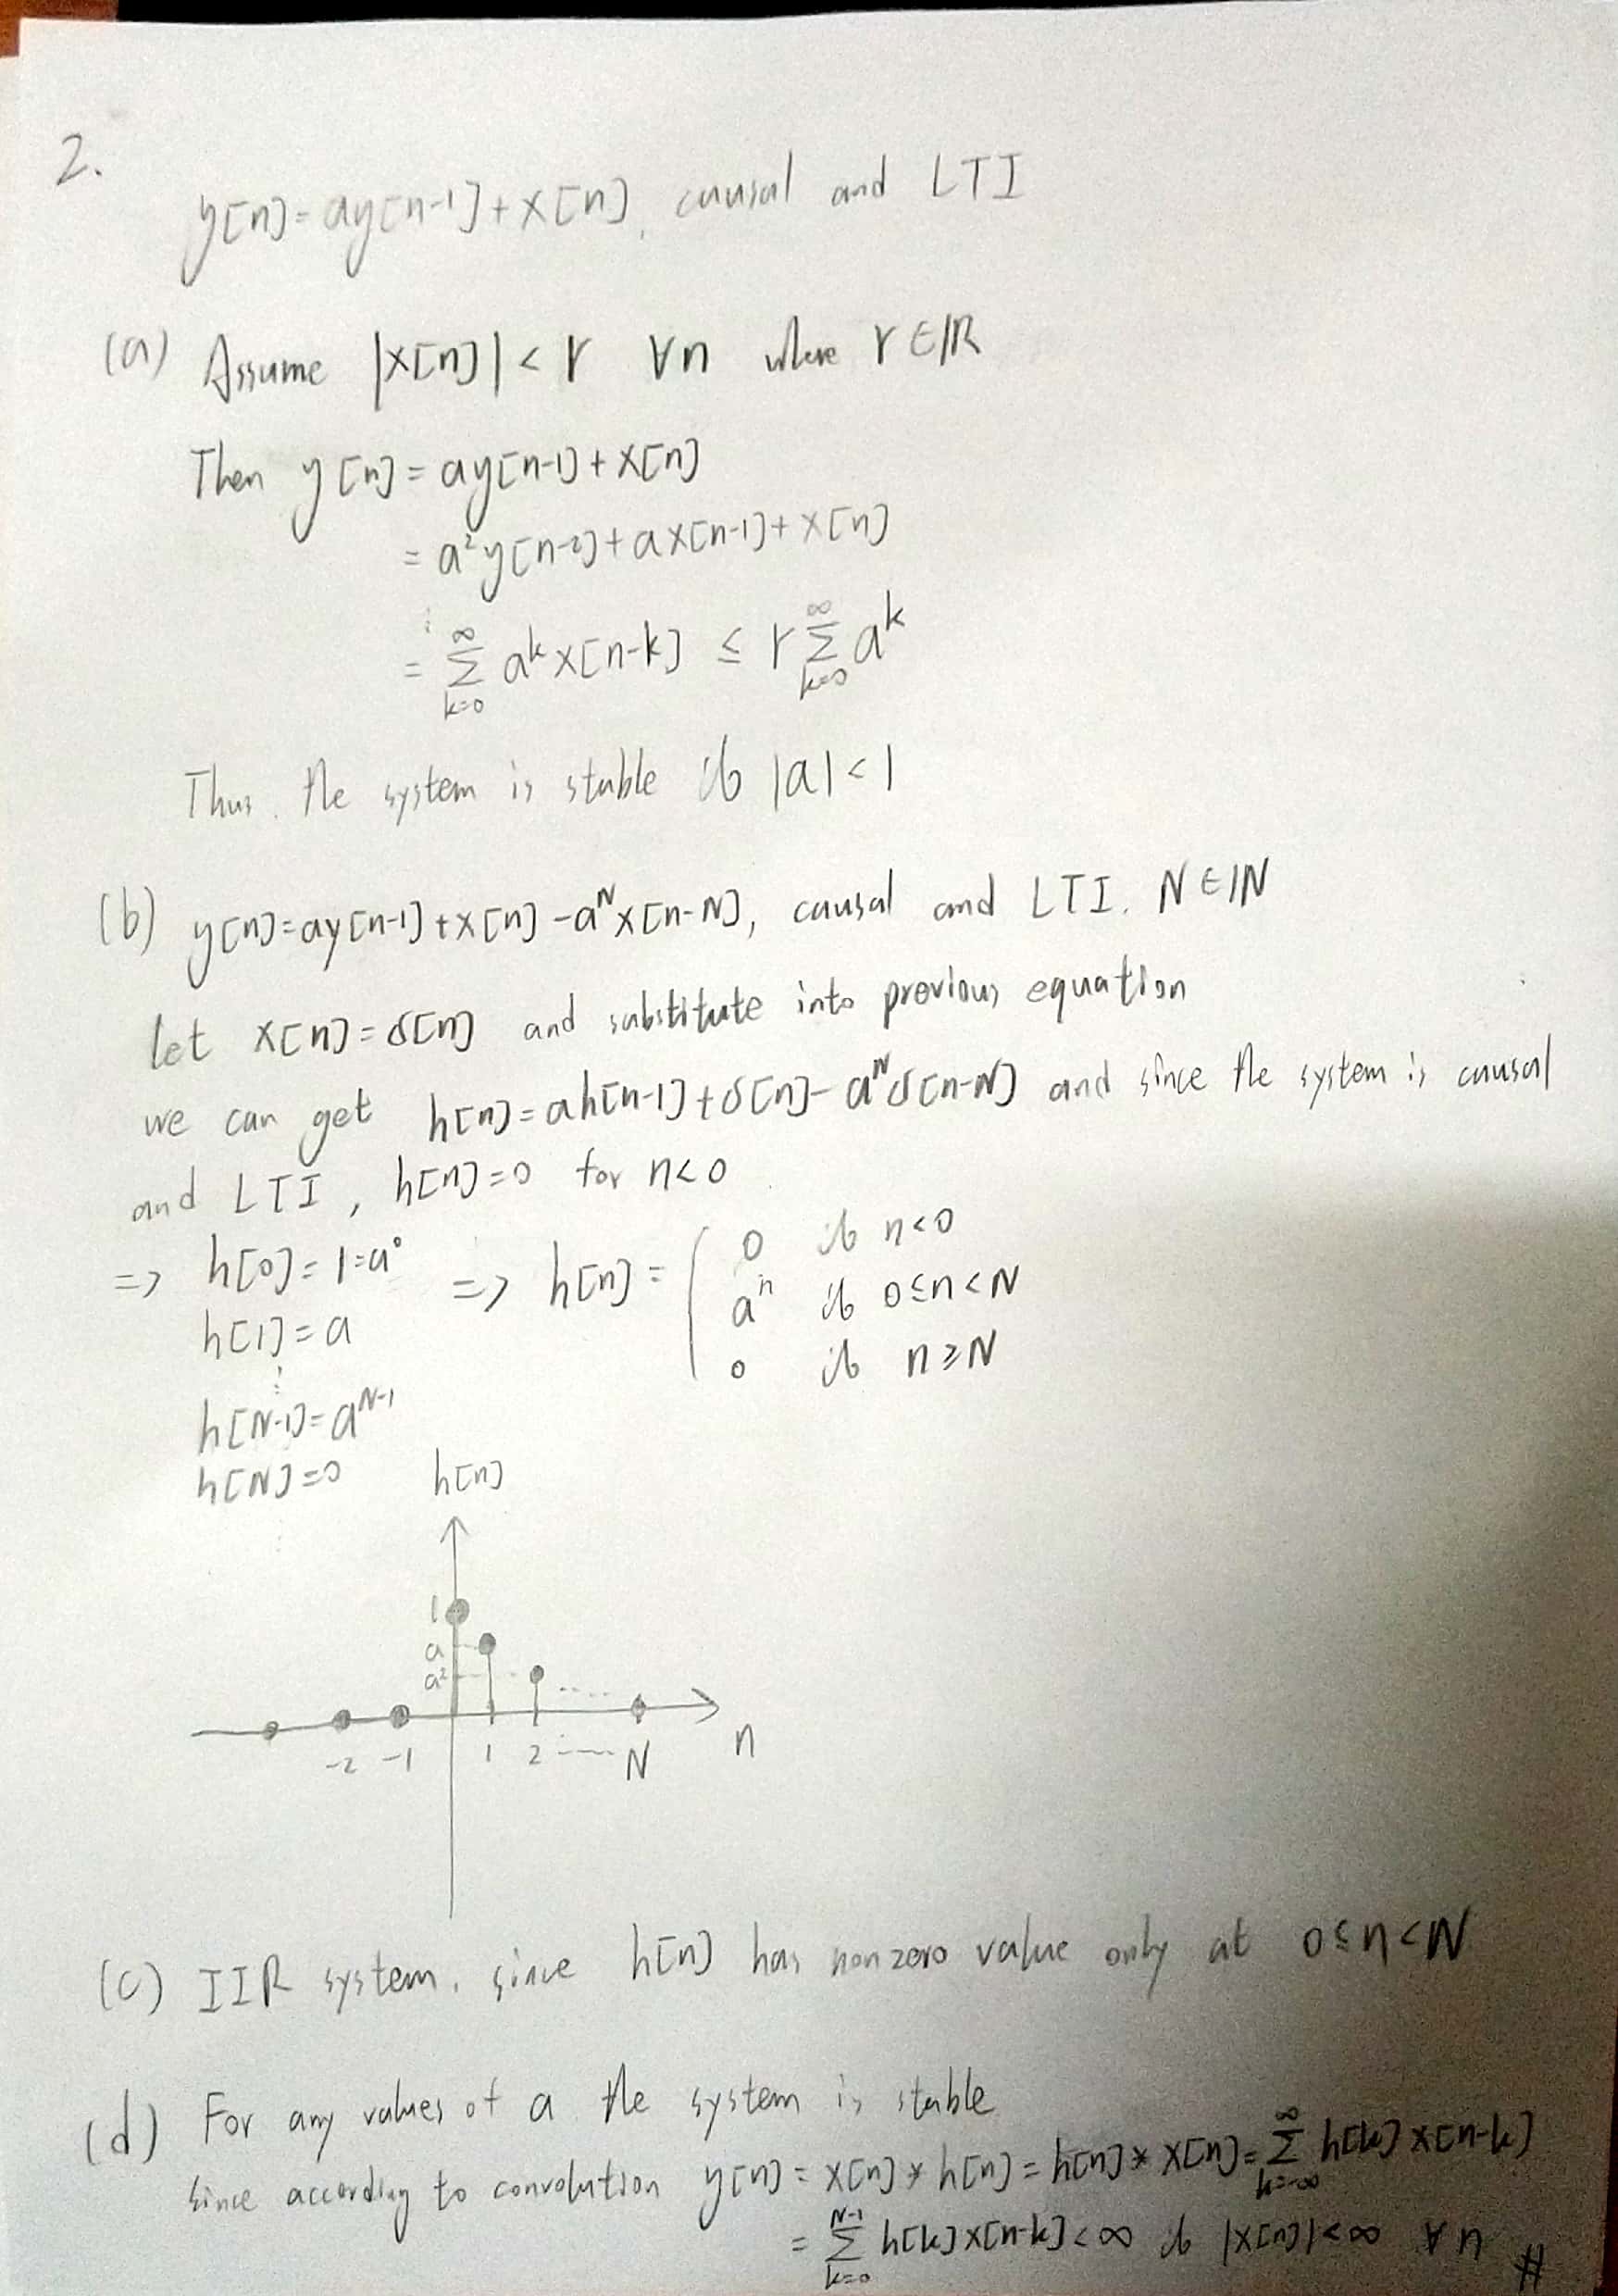 2.
y[n]=ay[n-1]+x[n], causal and LTI
(a) Assume |x[n]|<r ∀n where r∈ℝ
Then y[n]=ay[n-1]+x[n]
=a²y[n-2]+ax[n-1]+x[n]
⋮
=∑_{k=0}^{∞} a^k x[n-k] ≤ r∑_{k=0}^{∞} a^k
Thus, the system is stable if |a|<1
(b) y[n]=ay[n-1]+x[n]-a^N x[n-N], causal and LTI. N∈ℕ
let x[n]=δ[n] and substitute into previous equation
we can get h[n]=ah[n-1]+δ[n]-a^N δ[n-N] and since the system is causal
and LTI, h[n]=0 for n<0
=> h[0]=1=a⁰ => h[n]={ 0 if n<0
h[1]=a a^n if 0≤n<N
⋮ 0 if n≥N
h[N-1]=a^{N-1}
h[N]=0 h[n]
⋮
1
a
a² ....
-2 -1 1 2 ---- N n
(c) IIR system, since h[n] has nonzero value only at 0≤n<N
(d) For any values of a the system is stable
since according to convolution y[n]=x[n]*h[n]=h[n]*x[n]=∑_{k=-∞}^{∞} h[k]x[n-k]
=∑_{k=0}^{N-1} h[k]x[n-k]<∞ if |x[n]|<∞ ∀n #